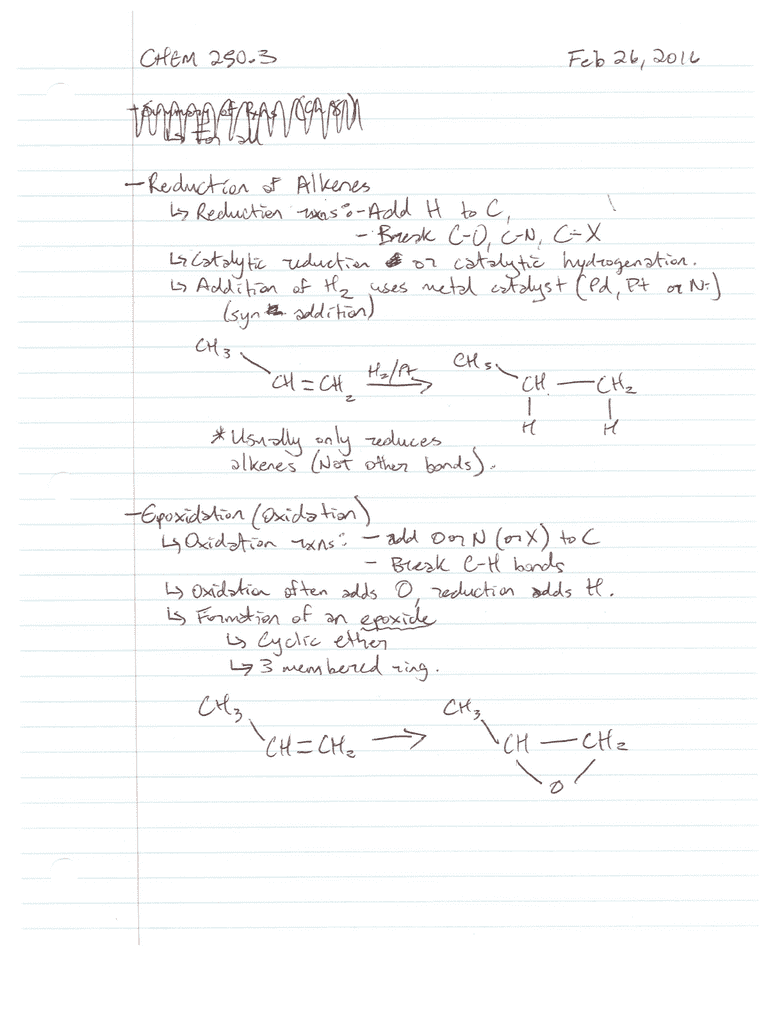 CHEM 250.3 Feb 26, 2016
- Reduction of Alkenes
↳ Reduction rxns: - Add H to C,
- Break C-O, C-N, C-X
↳ Catalytic reduction or catalytic hydrogenation.
↳ Addition of H2 uses metal catalyst (Pd, Pt or Ni)
(syn addition)
CH3 CH3
CH=CH2 H2/Pt → CH — CH2
H H
* Usually only reduces
alkenes (Not other bonds).
- Epoxidation (Oxidation)
↳ Oxidation rxns: - add O or N (or X) to C
- Break C-H bonds
↳ Oxidation often adds O, reduction adds H.
↳ Formation of an epoxide
↳ Cyclic ether
↳ 3 membered ring.
CH3 CH3
CH=CH2 → CH — CH2
O